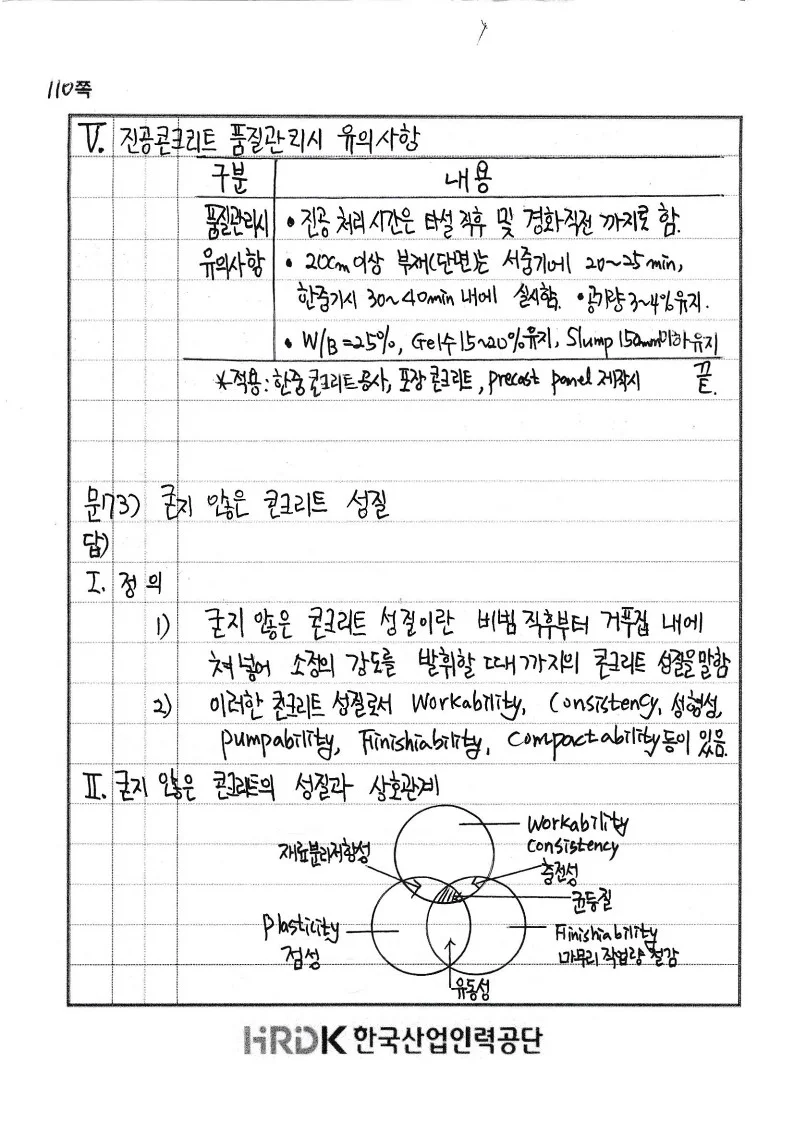 110쪽
Ⅴ. 진공콘크리트 품질관리시 유의사항
구분 내용
품질관리시 • 진공 처리시간은 타설 직후 및 경화직전 까지로 함.
유의사항 • 20cm 이상 부재(단면)는 서중기에 20~25min,
한중기시 30~40min 내에 실시함. • 공기량 3~4% 유지.
• W/B=25%, Gel수 15~20% 유지, Slump 150mm이하유지
* 적용 : 한중콘크리트공사, 포장콘크리트, precast panel 제작시 끝.
문173) 굳지 않은 콘크리트 성질
답)
Ⅰ. 정의
1) 굳지 않은 콘크리트 성질이란 비빔 직후부터 거푸집 내에
쳐 넣어 소정의 강도를 발휘할 때까지의 콘크리트 성질을 말함
2) 이러한 콘크리트 성질로서 Workability, Consistency, 성형성,
Pumpability, Finishiability, Compactability 등이 있음.
Ⅱ. 굳지 않은 콘크리트의 성질과 상호관계
Workability
Consistency
재료분리저항성
충전성
균등질
Plasticity
점성
Finishiability
마무리 작업량 절감
유동성
HRDK 한국산업인력공단